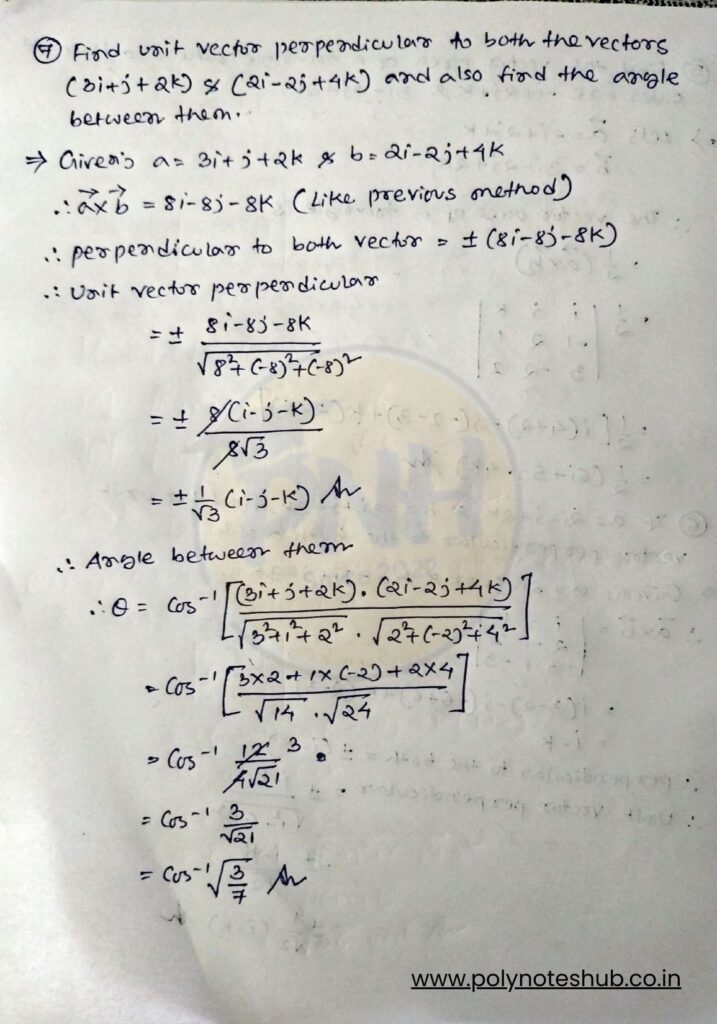 ⑦ Find unit vector perpendicular to both the vectors
(3i+j+2k) & (2i-2j+4k) and also find the angle
between them.
⇒ Given's a = 3i+j+2k & b = 2i-2j+4k
∴ a⃗×b⃗ = 8i-8j-8k (Like previous method)
∴ perpendicular to both vector = ± (8i-8j-8k)
∴ Unit vector perpendicular
= ± (8i-8j-8k) / √(8²+(-8)²+(-8)²)
= ± 8(i-j-k) / 8√3
= ± 1/√3 (i-j-k) An
∴ Angle between them
∴ θ = cos⁻¹ [(3i+j+2k).(2i-2j+4k) / √(3²+1²+2²) . √(2²+(-2)²+4²)]
= cos⁻¹ [3×2+1×(-2)+2×4 / √14 . √24]
= cos⁻¹ 12 3 / 4√21
= cos⁻¹ 3/√21
= cos⁻¹ √(3/7) An
PNH
www.polynoteshub.co.in